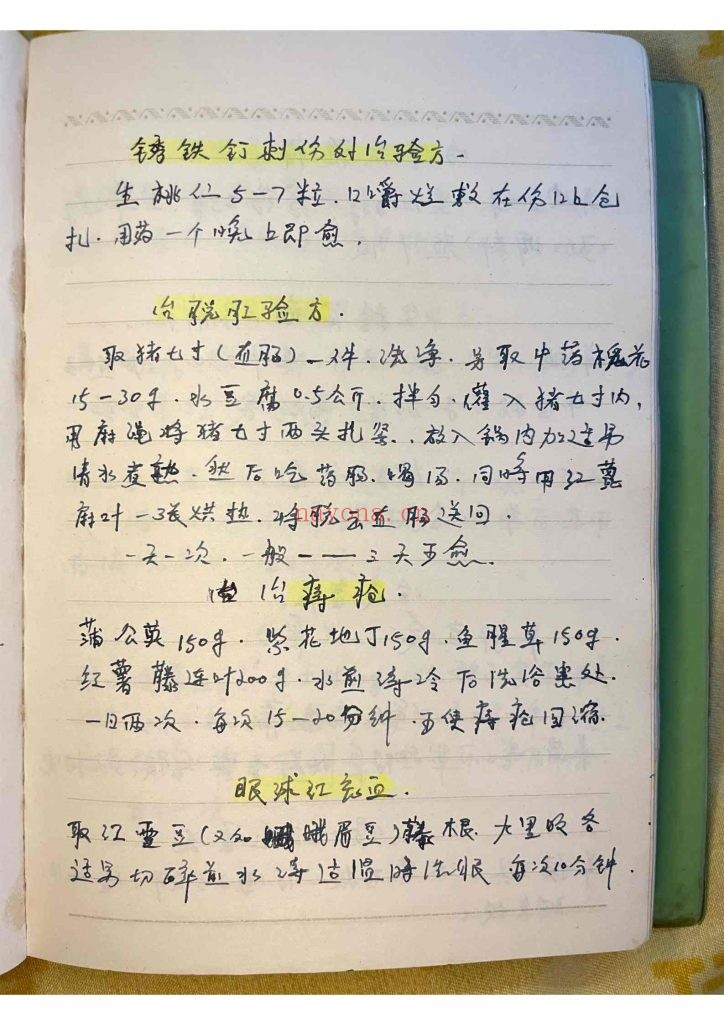 锈铁钉刺伤对治验方.
生桃仁5-7粒.口嚼烂敷在伤口上包
扎.用药一个晚上即愈.
治脱肛验方.
取猪七寸(直肠)一件.洗净.另取中药槐花
15-30g.水豆腐0.5公斤.拌匀.灌入猪七寸内,
用麻绳将猪七寸两头扎紧.放入锅内加适量
清水煮熟.然后吃药肠.喝汤.同时用红蓖
麻叶一3张烘热.将脱出直肠送回.
一天一次.一般一——三天可愈.
治痔疮.
蒲公英150g.紫花地丁150g.鱼腥草150g.
红薯藤连叶200g.水煎待冷后洗浴患处.
一日两次.每次15-20分钟.可使痔疮回缩.
眼球红充血.
取江雪豆(又如峨眉豆)藤根.九里明各
适量切碎煎水待适温时洗眼.每次10分钟.